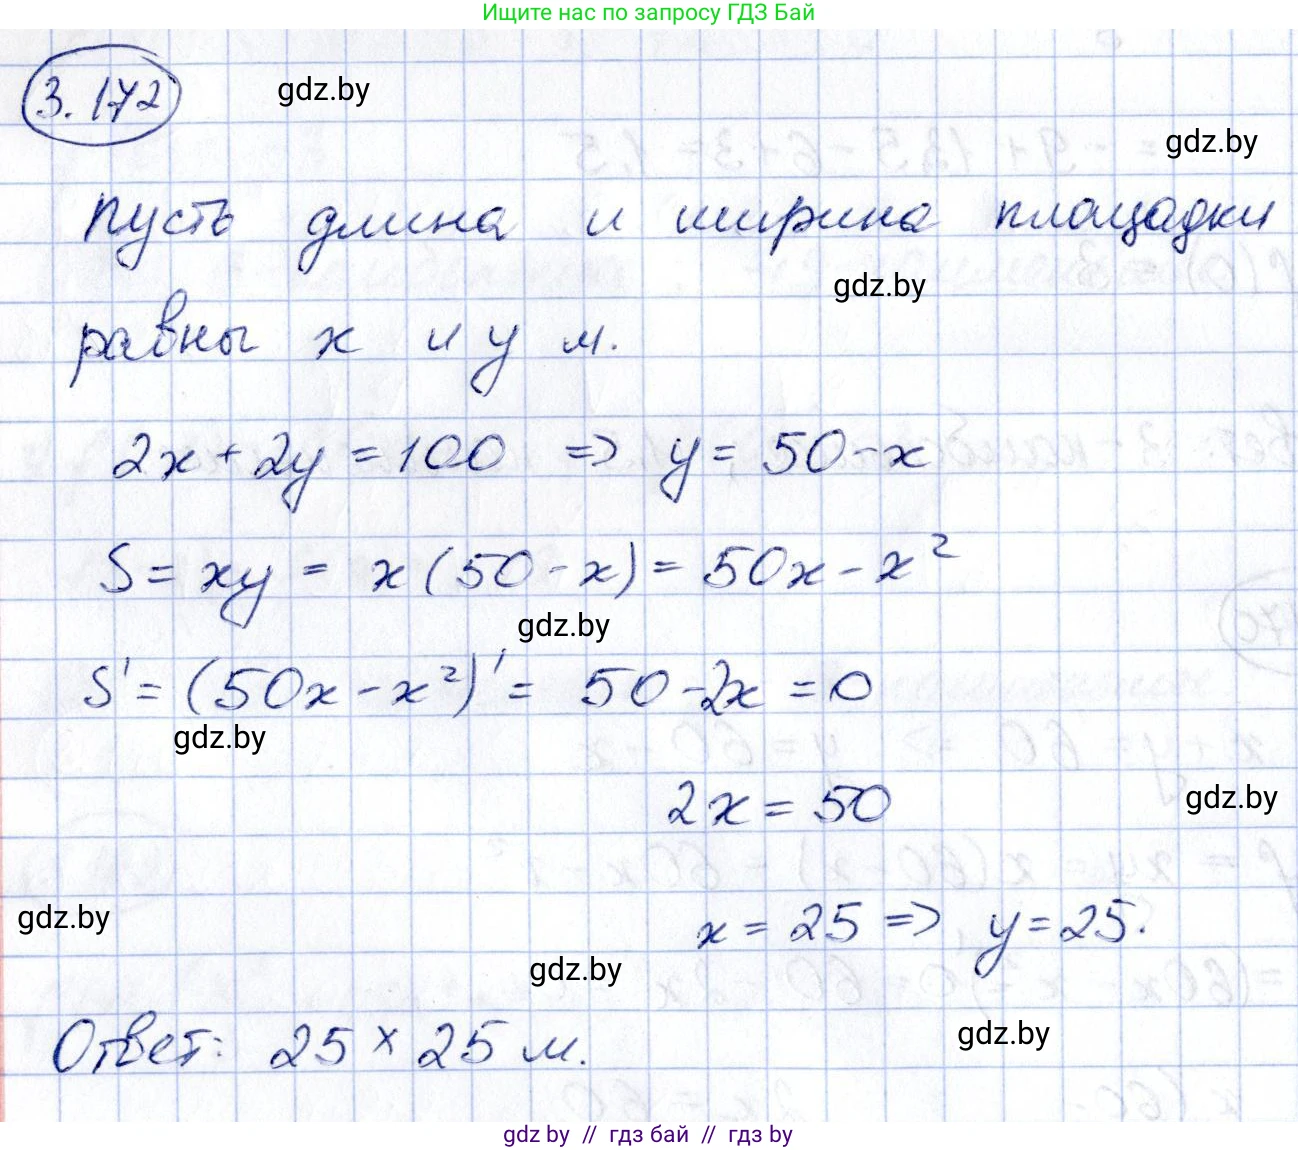 Ищите нас по запросу ГДЗ Бай
3.172
gdz.by
gdz.by
Пусть длина и ширина площадки
gdz.by
равны x и y м.
2x + 2y = 100 => y = 50 - x
S = xy = x(50 - x) = 50x - x²
gdz.by
S' = (50x - x²)' = 50 - 2x = 0
gdz.by
2x = 50
gdz.by
gdz.by
x = 25 => y = 25.
gdz.by
gdz.by
Ответ: 25 × 25 м.
gdz.by // гдз бай // гдз by